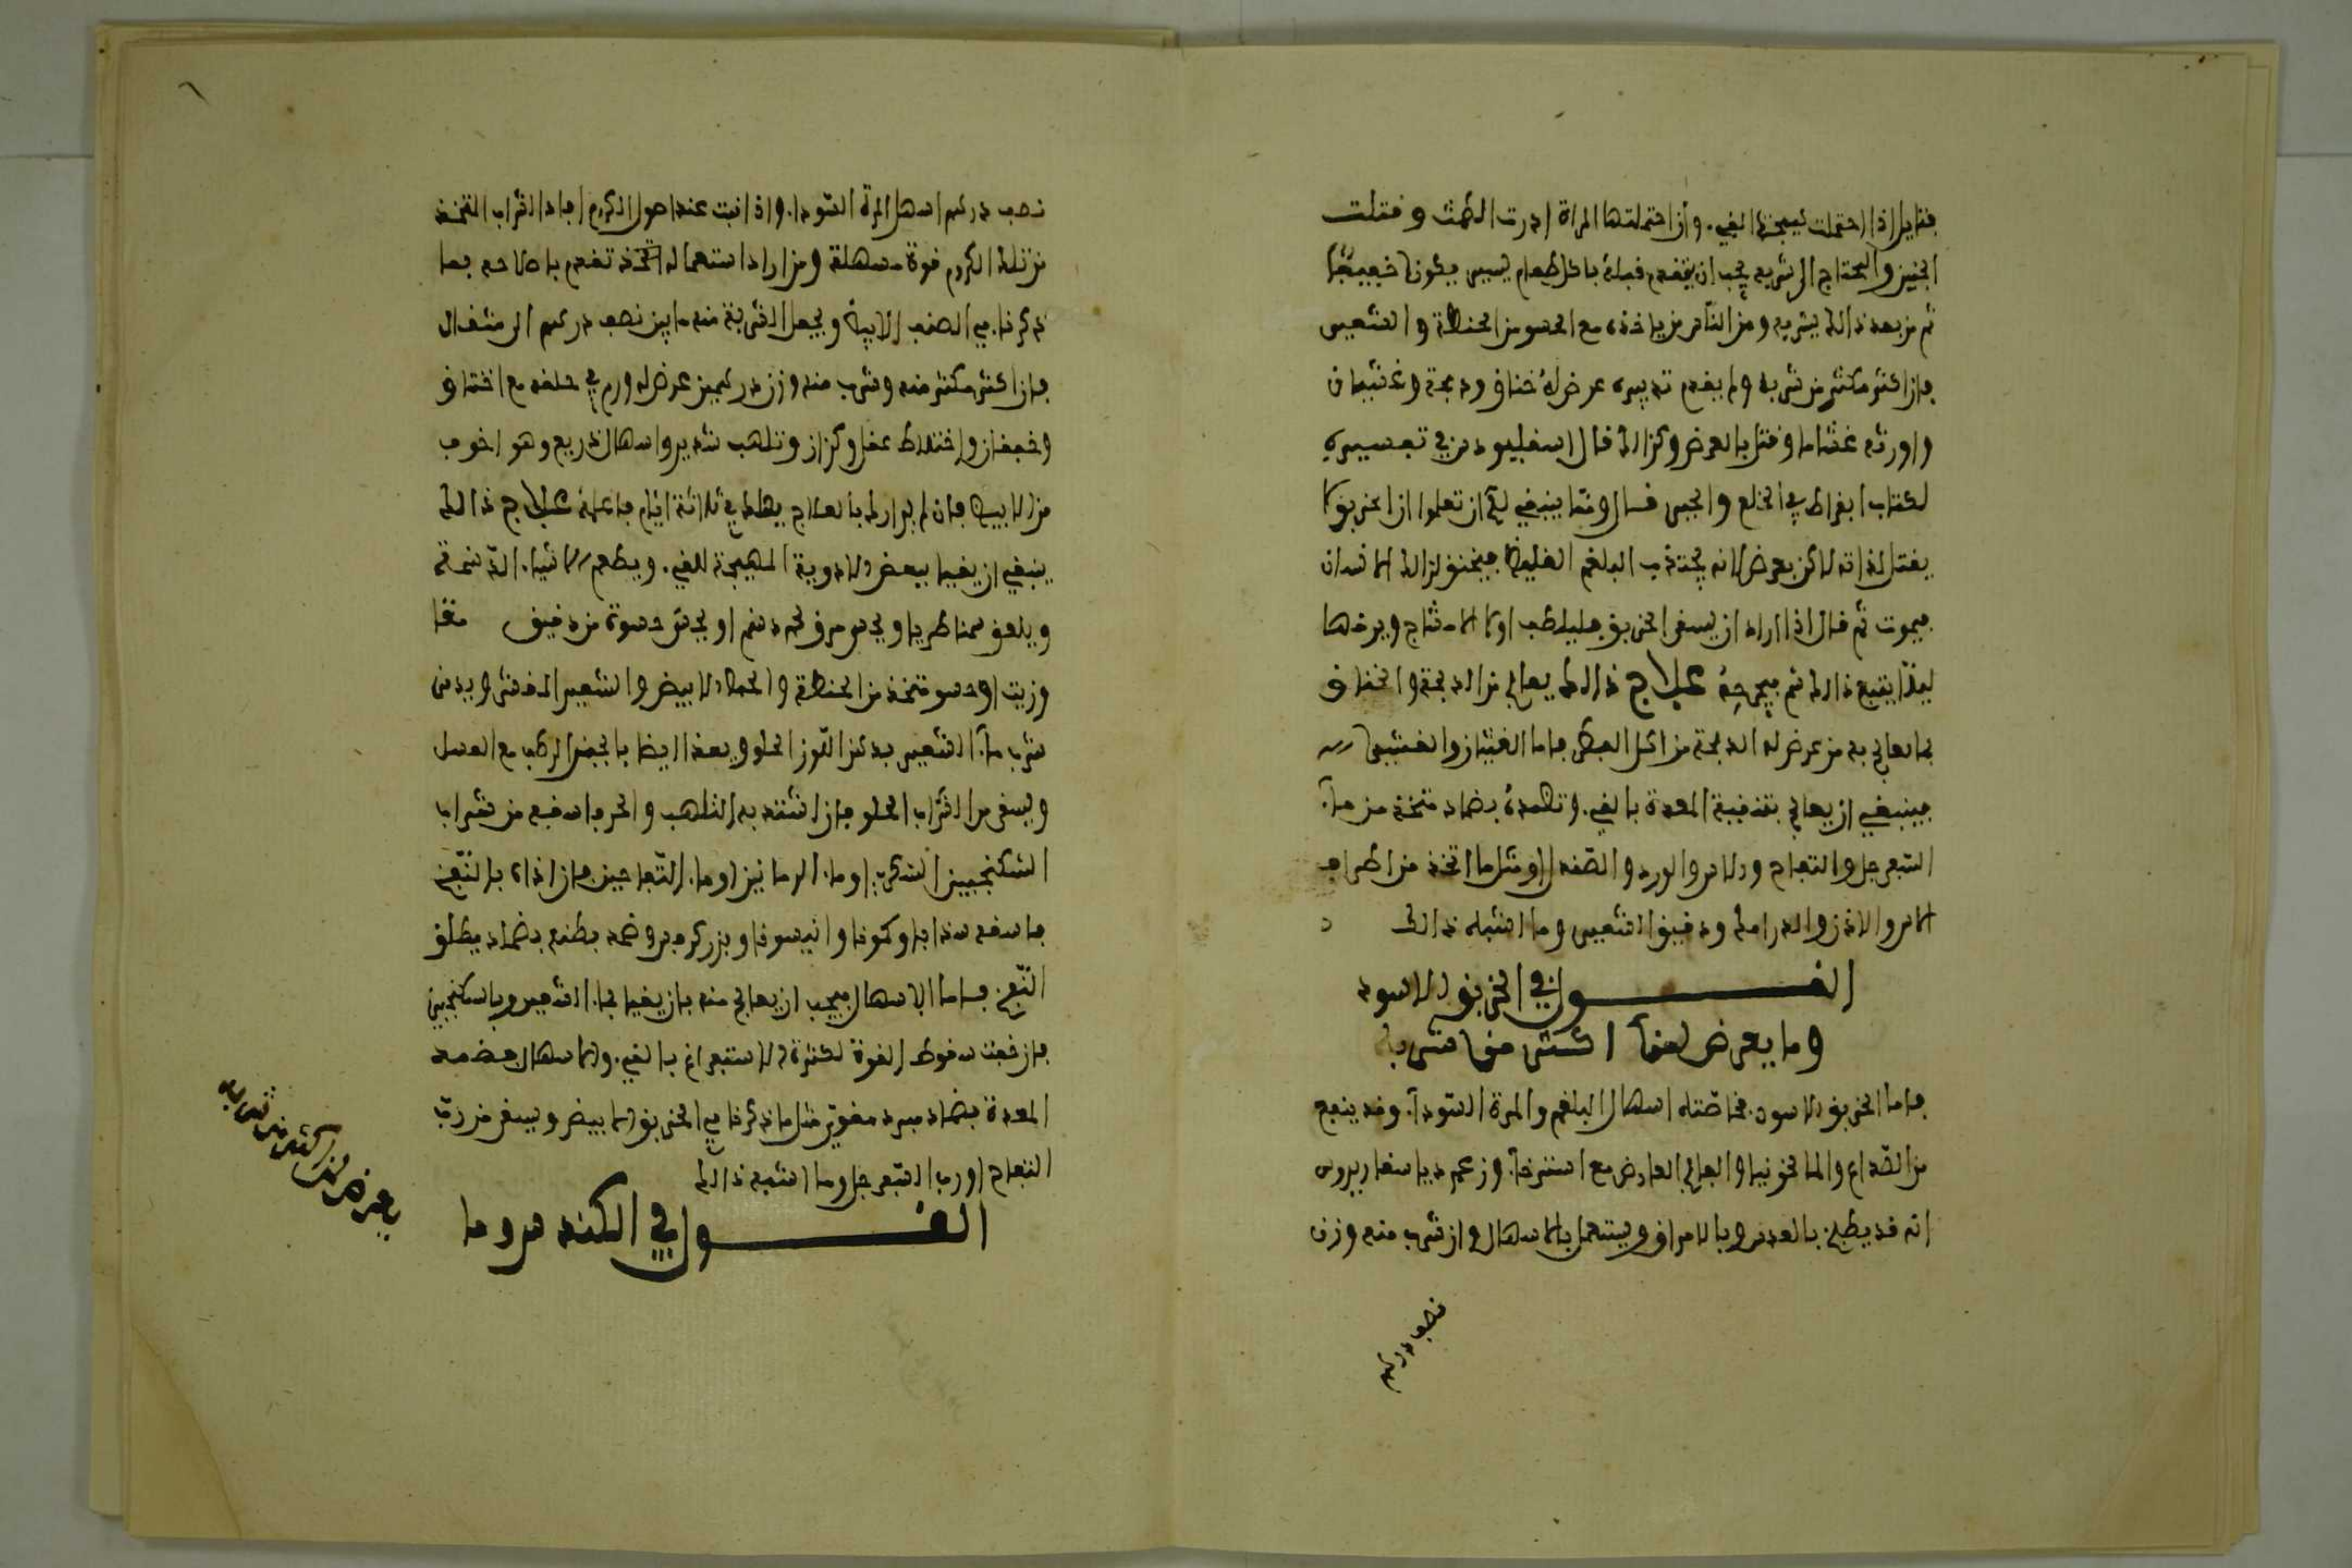 فتايل اذا احتملت هيجت القيء وان احتملتها المراة ادرت الطمث وقتلت
الجنين والمحتاج الى شربه يجب ان يتقدم قبله باكل طعام يسير يكون خفيفا
ثم من بعد ذالك يشربه ومن الناس من ياخذه مع الحسو من الحنطة والشعير
فان اكثر مكثر من شربه ولم يقدم تدبيره عرض له خناق وذبحة وغثيان
واورثه غشاما وقتل بالعرض وكذالك قال اسقليبوس في تفسيره
لكتاب ابقراط في الخلع والجبر قال ومما ينبغي لك ان تعلموا ان الخربق لا
يقتل لذاته لاكن بعرض لانه يجتذب البلغم الغليظ فيختنق لذالك الانسان
فيموت ثم قال اذا اراد ان يسقى الخربق فليلطف اولا الامشاج ويرخها
ليلا يقبح ذالك ثم علاج ذالك يعالج من الذبحة والخناق
بما يعالج به من عرض له الذبحة من اكل الفطر فاما الغثيان والغشي
فينبغي ان يعالج بتنقية المعدة بالقيء وتضمده بضماد متخذ من ماء
السفرجل والتفاح والاس والورد والصندل او مثل ما اتخذ من اطراف
الاس والاذن والرامك ودقيق الشعير وما اشبه ذالك
القول في الخربق الاسود
وما يعرض لمن اكثر من شربه
فاما الخربق الاسود فخاصته اسهال البلغم والمرة السوداء وقد ينفع
من الصداع والمالنخونيا والفالج العارض مع استرخاء وزعم دياسقاريدوس
انه قد يطبخ بالعدس وبالامراق ويستعمل بالاسهال وان شرب منه وزن
نصف درهم
نصف درهم اسهل المرة السوداء واذا نبت عند اصول الكروم افاد الشراب المتخذ
من تلك الكروم قوة مسهلة ومن اراد استعماله تقدم باصلاحه بما
ذكرنا في الصنف الابيض ويجعل الشربة منه ما بين نصف درهم الى مثقال
فان اكثر مكثر منه وشرب منه وزن درهمين عرض له ورم في حلقه مع اختناق
وخفقان واختلاط عقل وكزاز وتلهب شديد واسهال ذريع وهو اخوف
من الابيض فان لم يدارك بالعلاج يهلك في ثلاثة ايام فاعلمه علاج ذالك
ينبغي ان يقيا ببعض الادوية المهيجة للقيء ويطعم الاشياء الدسمة
ويلعق سمنا طريا ويحسى مرق لحم دسم او يحسى حسوة من دقيق
وزيت او حسو متخذ من الحنطة والحمص الابيض والشعير المقشر ويدمن
شرب ماء الشعير بدهن اللوز الحلو ويغذا ايضا بالجبن الرطب مع العسل
ويسقى من الشراب الحلو فان اشتد به التلهب والحر فاسقه من شراب
السكنجبين السكري او ماء الرمانين او ماء التفاحين فان اذاه بالنفخ
فاسقه سذابا وكمونا وانيسونا وبزر كرفس وضمد بطنه بضماد يطلق
النفخ فاما الاسهال فيجب ان يعالج منه بان يقيا بماء الشعير وبالسكنجبين
فان خفت سقوط القوة لكثرة الاستفراغ بالقيء والاسهال فضمد
المعدة بضماد مبرد مقوي مثل ما ذكرنا في الخربق الابيض ويسقى من رب
التفاح او رب السفرجل وما اشبه ذالك
القول في الكندس وما
يعرض لمن اكثر من شربه